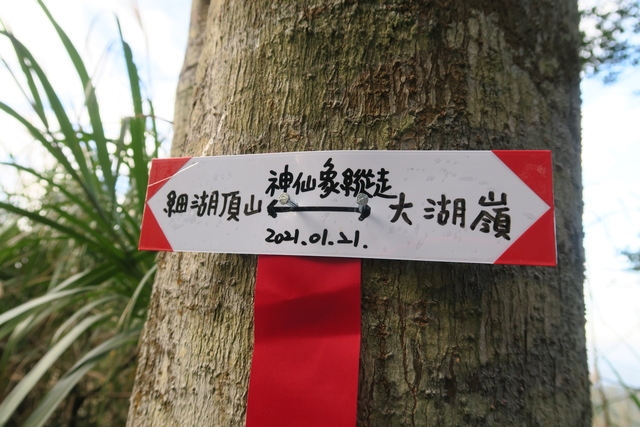 神仙象縱走
細湖頂山 ←→ 大湖嶺
2021.01.21.